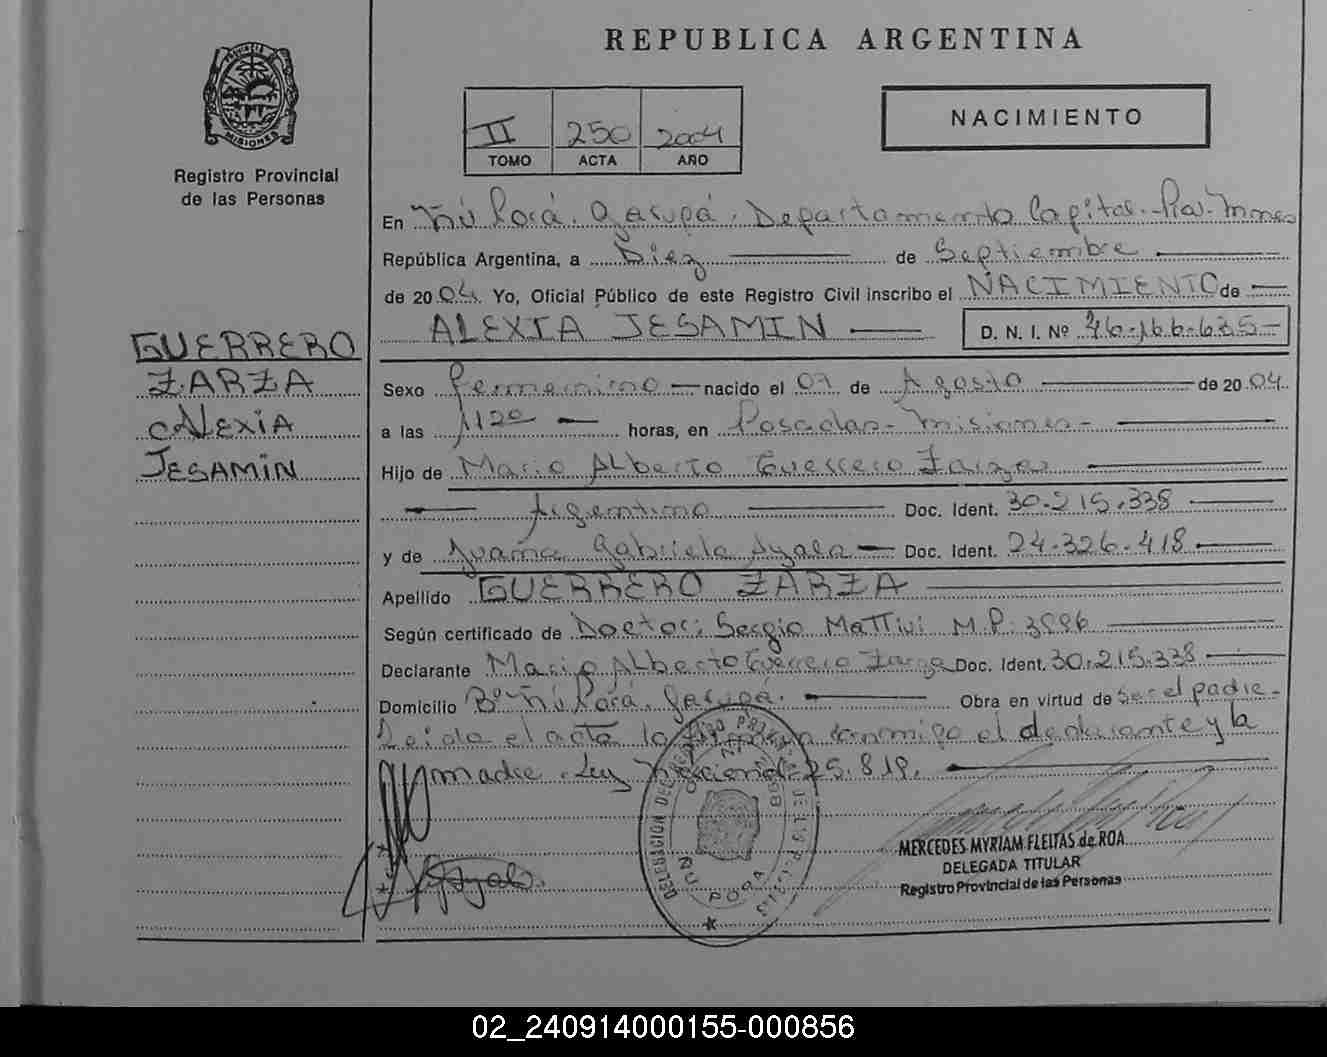 REPUBLICA ARGENTINA
PROVINCIA DE
MISIONES
Registro Provincial
de las Personas
II 250 2004
TOMO ACTA AÑO
NACIMIENTO
En Ñú Porá. Garupá. Departamento Capital.
República Argentina, a Diez de Septiembre
de 2004. Yo, Oficial Público de este Registro Civil inscribo el NACIMIENTO de
ALEXIA JESAMIN D. N. I. Nº
GUERRERO
ZARZA
ALEXIA
JESAMIN
Sexo femenino nacido el 07 de Agosto de 2004.
a las 1120 horas, en Posadas - Misiones -
Hijo de Mario ALberto Guerrero Zarza
Argentino Doc. Ident. 30.215.338
y de Juana Gabriela Ayala Doc. Ident. 24.326.418
Apellido GUERRERO ZARZA
Según certificado de Doctor: Sergio MaTTivi M.P.
Declarante Mario ALberto Guerrero Zarza Doc. Ident. 30.215.338
Domicilio Bº Ñú Porá. Garupá. Obra en virtud de ser el padre.
Leida el acta la conmigo el declarante y la
madre. Ley Nacional 25.819.
DELEGACION DEL REGISTRO PROVINCIAL DE LAS PERSONAS
ÑU PORA
MERCEDES MYRIAM FLEITAS de ROA
DELEGADA TITULAR
Registro Provincial de las Personas
02_240914000155-000856